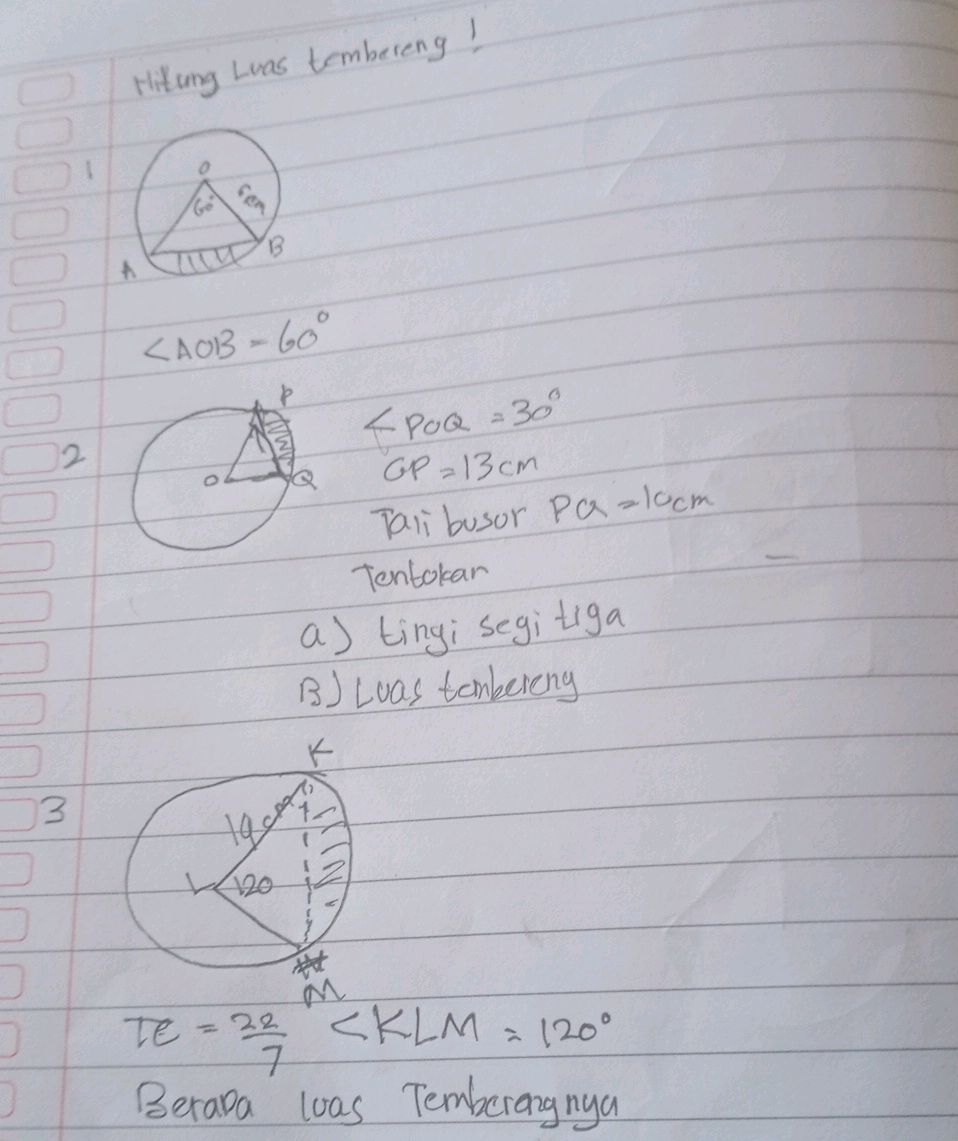 Hitung Luas tembereng!
1
O
60° 6cm
A B
<AOB = 60°
P
2
<POQ = 30°
O Q
OP = 13 cm
Tali busur PQ = 10cm
Tentukan
a) tingi segi tiga
B) Luas tembereng
K
3
cm
L 120
M
π = 22/7 <KLM = 120°
Berapa luas Temberengnya